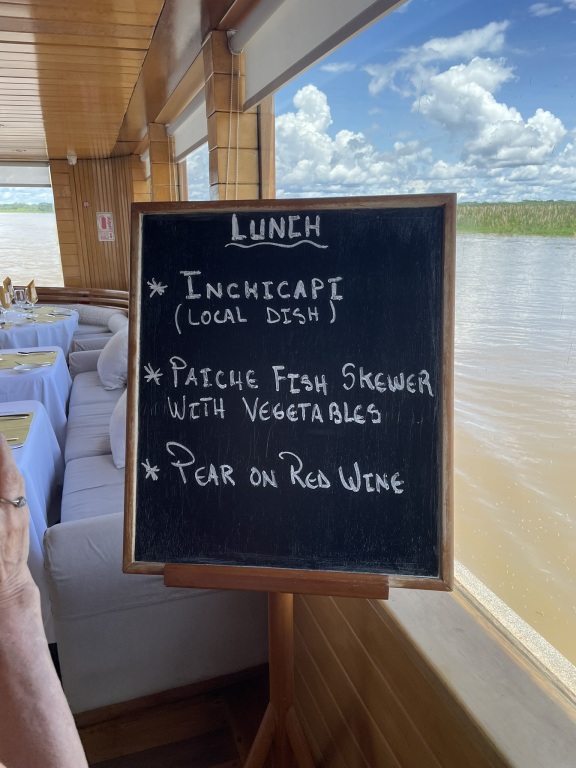 LUNCH
* INCHICAPI
(LOCAL DISH)
* PAICHE FISH SKEWER
WITH VEGETABLES
* PEAR ON RED WINE